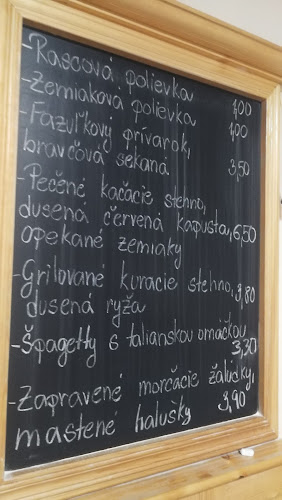 -Rascová polievka 1,00
-Zemiaková polievka 1,00
-Fazuľkový prívarok,
bravčová sekaná 3,50
-Pečené kačacie stehno,
dusená červená kapusta, 6,50
opekané zemiaky
-Grilované kuracie stehno, 3,80
dusená ryža
-Špagetty s talianskou omáčkou
3,30
-Zapravené morčacie žalúdky,
mastené halušky 3,90